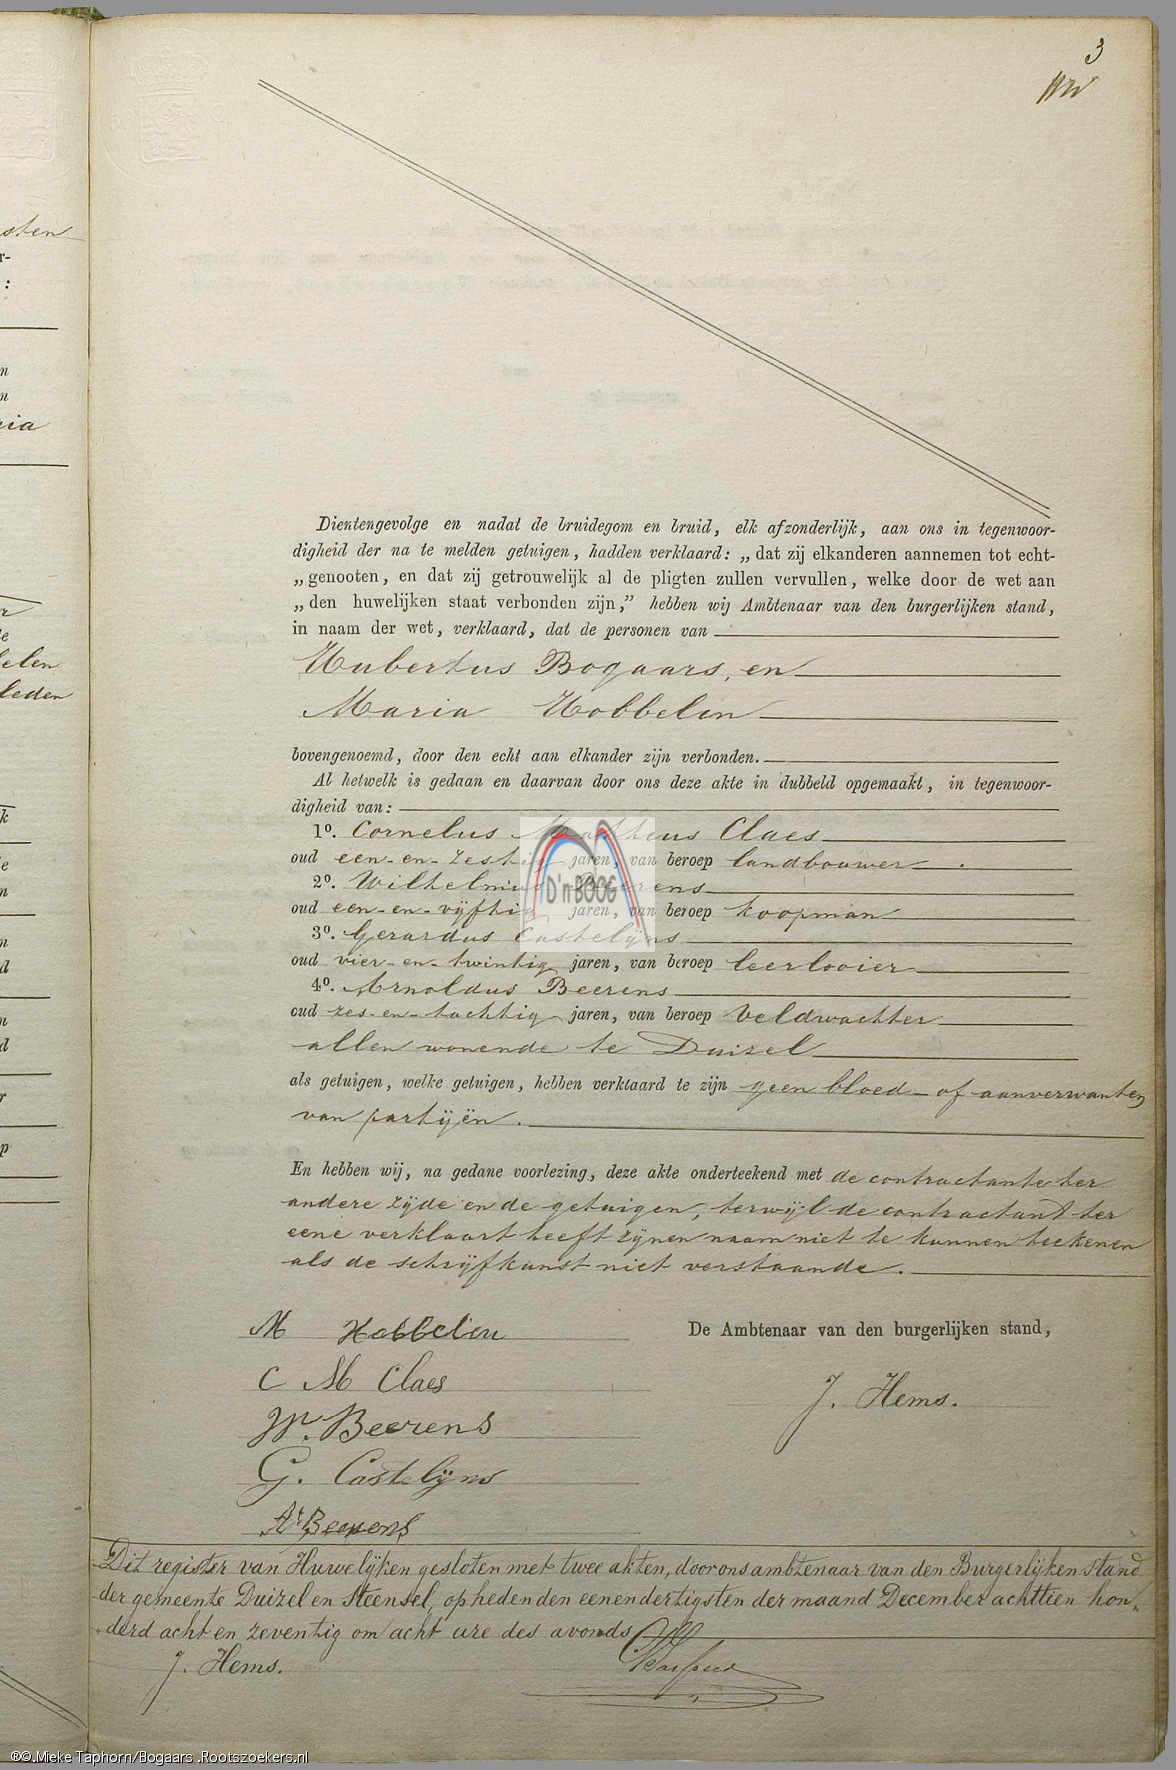 3
sten
r-
:
n
n
ria
r
le
elen
leden
k
e
n
n
d
n
d
r
p
Dientengevolge en nadat de bruidegom en bruid, elk afzonderlijk, aan ons in tegenwoor-
digheid der na te melden getuigen, hadden verklaard: „dat zij elkanderen aannemen tot echt-
„genooten, en dat zij getrouwelijk al de pligten zullen vervullen, welke door de wet aan
„den huwelijken staat verbonden zijn,” hebben wij Ambtenaar van den burgerlijken stand,
in naam der wet, verklaard, dat de personen van
Hubertus Bogaars, en
Maria Hobbelen
bovengenoemd, door den echt aan elkander zijn verbonden.
Al hetwelk is gedaan en daarvan door ons deze akte in dubbeld opgemaakt, in tegenwoor-
digheid van:
1º. Cornelus Mattheus Claes
oud een-en-zestig jaren, van beroep landbouwer.
2º. Wilhelmus Beerens
oud een-en-vijftig jaren, van beroep koopman
3º. Gerardus Castelijns
oud vier-en-twintig jaren, van beroep leerlooier
4º. Arnoldus Beerens
oud zes-en-tachtig jaren, van beroep Veldwachter
allen wonende te Duizel
als getuigen, welke getuigen, hebben verklaard te zijn geen bloed- of aanverwanten
van partijën.
En hebben wij, na gedane voorlezing, deze akte onderteekend met de contractante ter
andere zijde en de getuigen, terwijl de contractant ter
eene verklaart heeft zijnen naam niet te kunnen teekenen
als de schrijfkunst niet verstaande.
De Ambtenaar van den burgerlijken stand,
M Hobbelen
C M Claes
J. Hems.
W. Beerens
G. Castelijns
Ar Beerens
Dit register van Huwelijken gesloten met twee akten, door ons ambtenaar van den Burgerlijken Stand
der gemeente Duizel en Steensel, op heden den eenendertigsten der maand December achttien hon„
„derd acht en zeventig om acht ure des avonds
J. Hems.
D'n BOOG
®©.Mieke Taphorn/Bogaars .Rootszoekers.nl